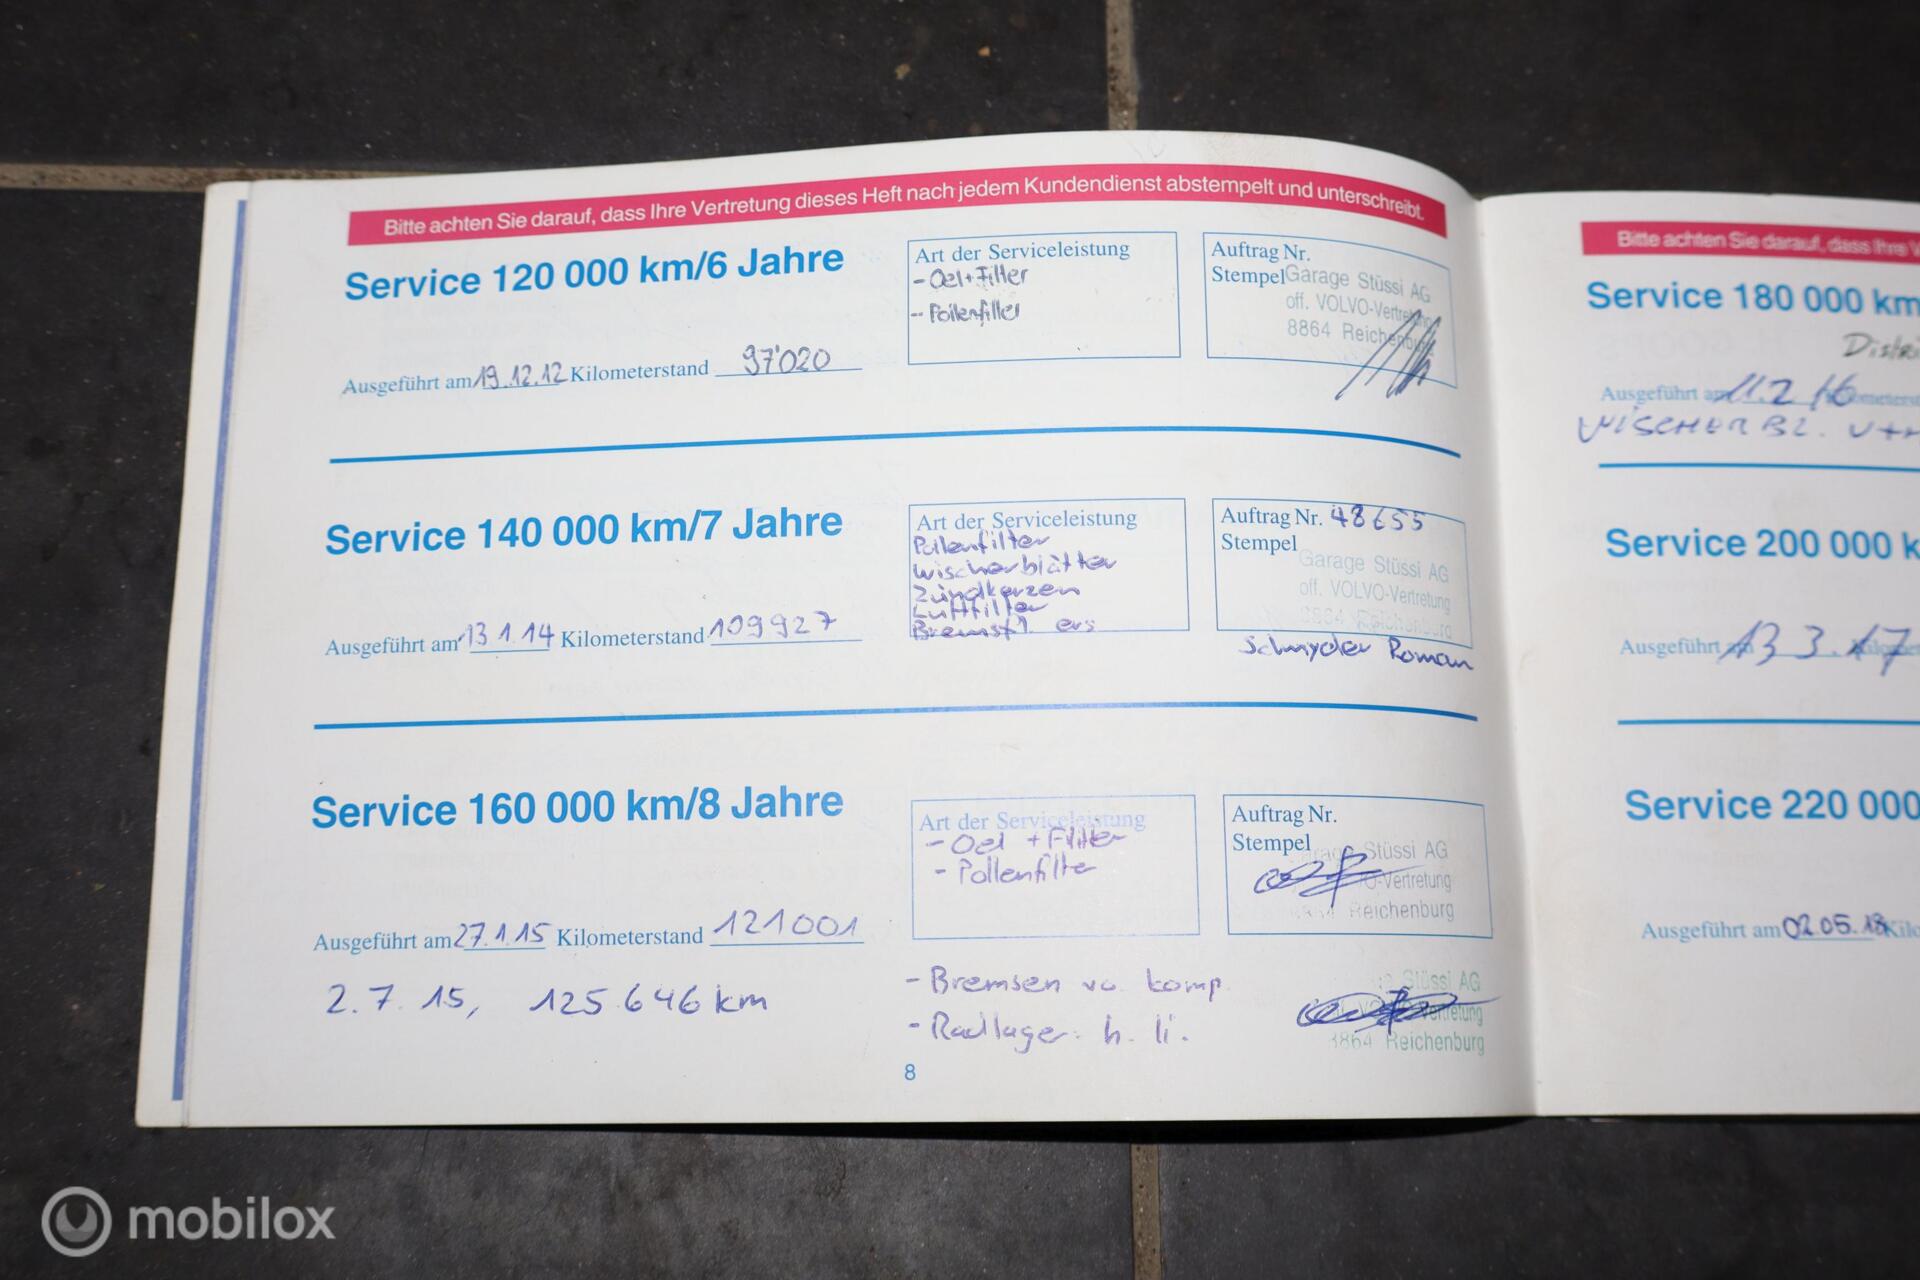 Bitte achten Sie darauf, dass Ihre Vertretung dieses Heft nach jedem Kundendienst abstempelt und unterschreibt.
Service 120 000 km/6 Jahre
Art der Serviceleistung
- Oel + Filter
- Pollenfilter
Auftrag Nr.
Stempel
Garage Stüssi AG
off. VOLVO-Vertretung
8864 Reichenburg
Ausgeführt am 19.12.12 Kilometerstand 97'020
Service 140 000 km/7 Jahre
Art der Serviceleistung
Pollenfilter
Wischerblätter
Zündkerzen
Luftfilter
Bremsfl. ers
Auftrag Nr. 48655
Stempel
Garage Stüssi AG
off. VOLVO-Vertretung
8864 Reichenburg
Schnyder Roman
Ausgeführt am 13.1.14 Kilometerstand 109927
Service 160 000 km/8 Jahre
Art der Serviceleistung
- Oel + Filter
- Pollenfilter
Auftrag Nr.
Stempel
Stüssi AG
-Vertretung
Reichenburg
Ausgeführt am 27.1.15 Kilometerstand 121001
2.7.15, 125.646 km
- Bremsen vo. komp.
- Radlager h. li.
Stüssi AG
8864 Reichenburg
8
Bitte achten Sie darauf, dass Ihre
Service 180 000 km
Ausgeführt am 11.2.16
WISCHERBL.
Service 200 000 k
Ausgeführt am 13 3.17
Service 220 000
Ausgeführt am 02.05.18 Kilo
mobilox